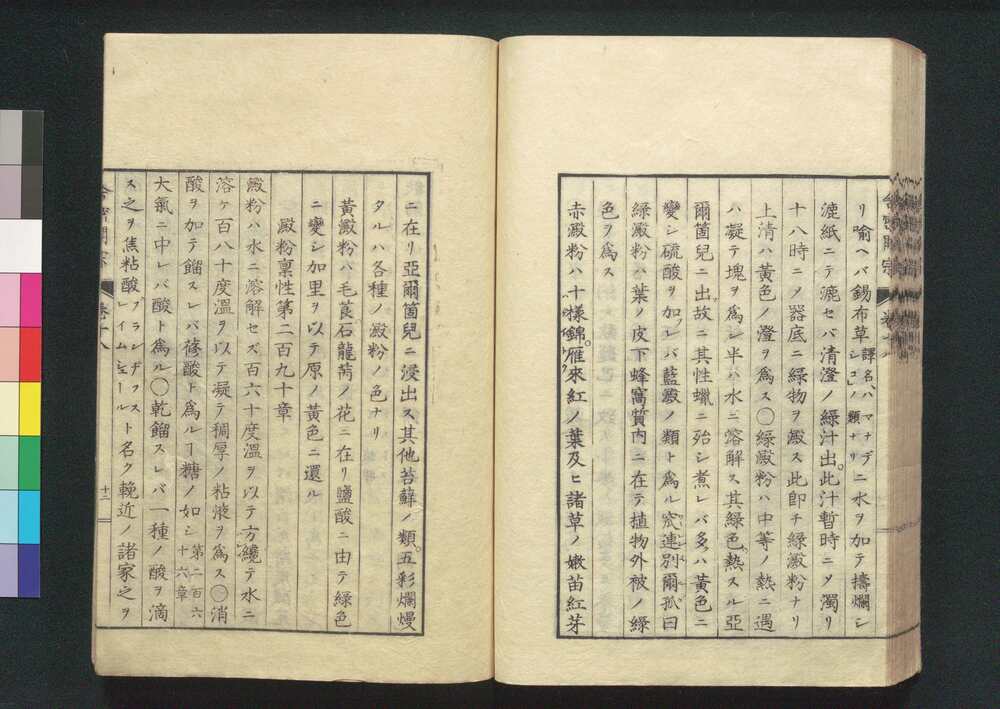 リ喩ヘバ錫布草譯名、ハマナデシコノ類ナリニ水ヲ加テ擣爛シ
漉紙ニテ漉セバ清澄ノ緑汁出。此汁暫時ニ〆濁リ
十八時ニ〆器底ニ緑物ヲ澱ス此即チ緑澱粉ナリ
上清ハ黄色ノ澄ヲ為ス〇緑澱粉ハ中等ノ熱ニ遇
ハ凝テ塊ヲ為シ半ハ水ニ溶解ス其緑色。熱スル亞
爾箇兒ニ出。故ニ其性蠟ニ殆シ煮レバ多ハ黄色ニ
變シ硫酸ヲ加フレバ藍澱ノ類ト為ル窊連別爾孤曰
緑澱粉ハ葉ノ皮下蜂窩質内ニ在テ植物外被ノ緑
色ヲ為ス
赤澱粉ハ十樣錦。雁來紅ノ葉及ヒ諸草ノ嫩苗紅芽
ニ在リ亞爾箇兒ニ浸出ス其他苔蘚ノ類。五彩爛熳
タルハ各種ノ澱粉ノ色ナリ
黄澱粉ハ毛茛石龍芮ノ花ニ在リ鹽酸ニ由テ緑色
ニ變シ加里ヲ以テ原ノ黄色ニ還ル
澱粉稟性第二百九十章
澱粉ハ水ニ溶解セズ百六十度溫ヲ以テ方纔テ水ニ
溶ケ百八十度溫ヲ以テ凝テ稠厚ノ粘液ヲ為ス〇消
酸ヲ加テ餾スレバ蓚酸ト為ルヿ糖ノ如シ第二百六十六章
大氣ニ中レバ酸ト為ル〇乾餾スレバ一種ノ酸ヲ滴
ス之ヲ焦粘酸ブランヂフスレイムシュールト名ク輓近ノ諸家之ヲ
卷十八
十二